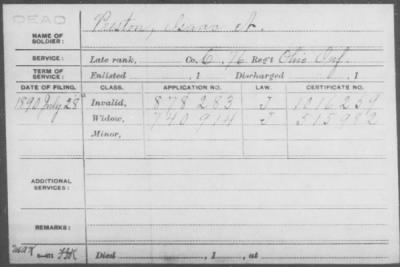 DEAD
NAME OF SOLDIER: Preston, Isaac A.
SERVICE: Late rank, Co. C, 76 Reg't Ohio Inf.
TERM OF SERVICE: Enlisted , 1 Discharged , 1
DATE OF FILING. CLASS. APPLICATION NO. LAW. CERTIFICATE NO.
1890 July 28 Invalid, 878283 J 1016257
Widow, 740914 J 515982
Minor,
ADDITIONAL SERVICES:
REMARKS:
Died , 1 , at